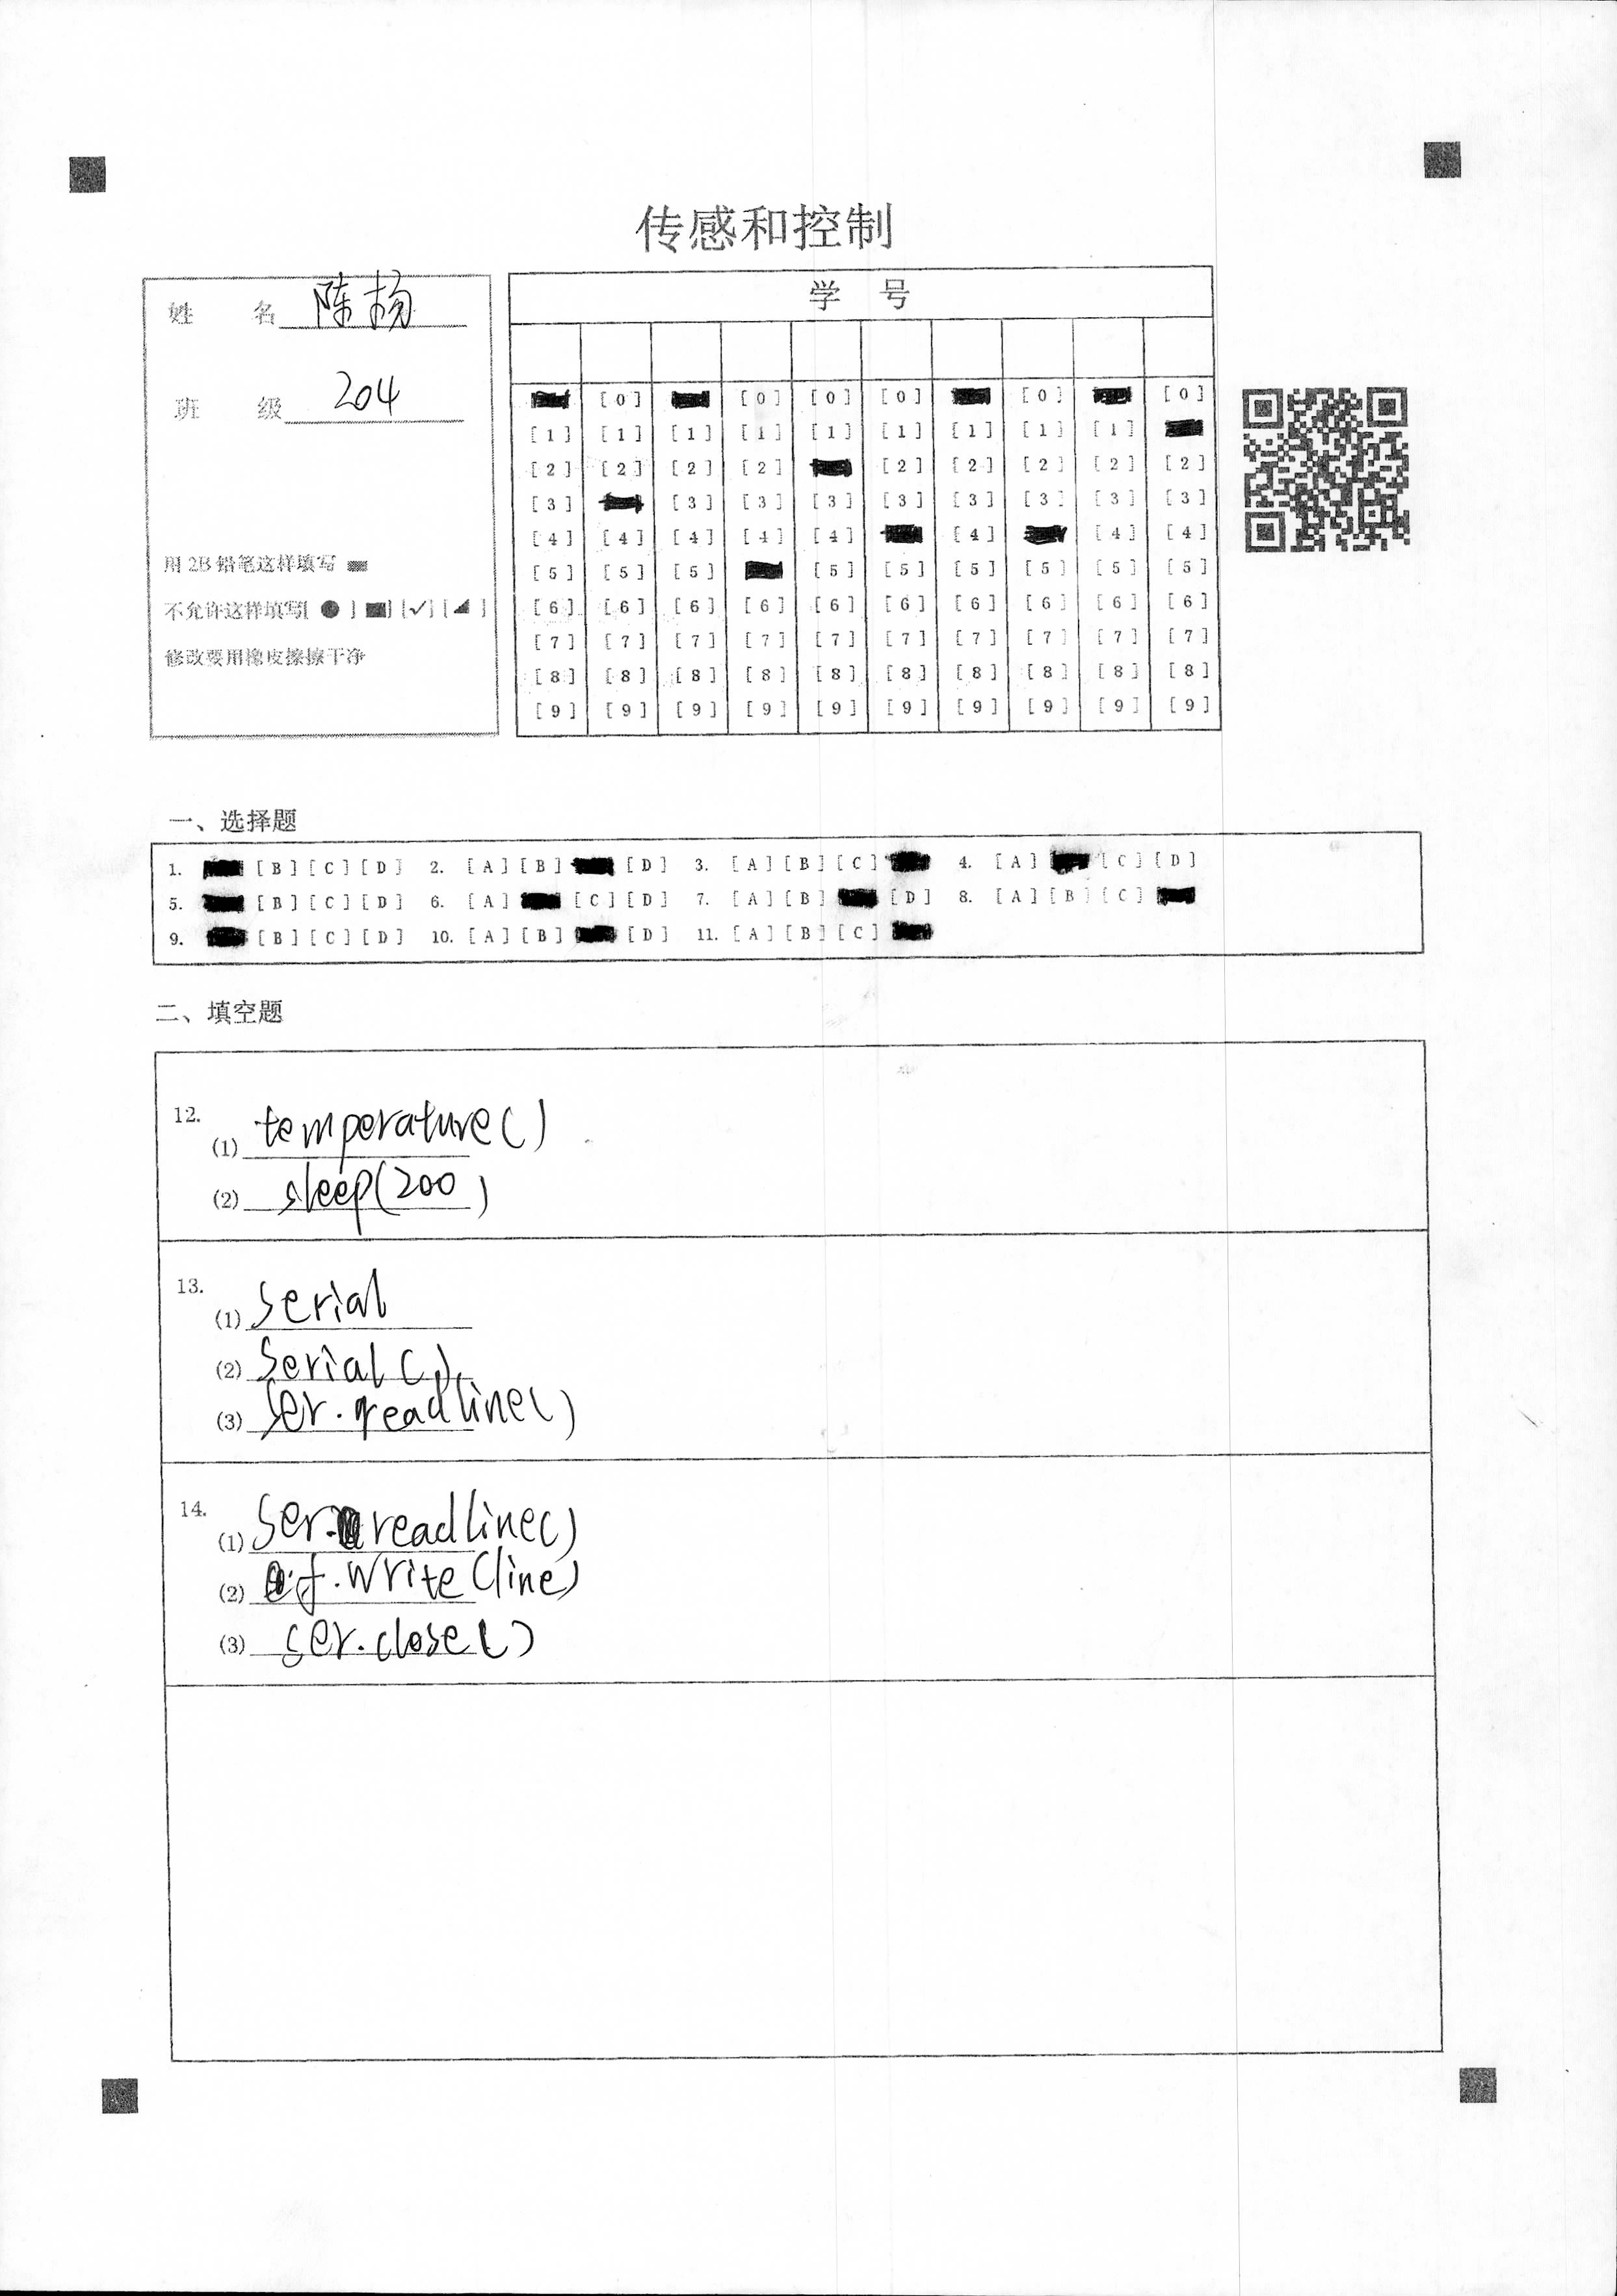 传感和控制
姓 名 陈杨
班 级 204
用 2B 铅笔这样填写
不允许这样填写[ ● ] [■] [✓] [◢ ]
修改要用橡皮擦擦干净
学 号
[0] [0] [0] [0] [0] [0]
[1] [1] [1] [1] [1] [1] [1] [1] [1]
[2] [2] [2] [2] [2] [2] [2] [2] [2]
[3] [3] [3] [3] [3] [3] [3] [3] [3]
[4] [4] [4] [4] [4] [4] [4] [4]
[5] [5] [5] [5] [5] [5] [5] [5] [5]
[6] [6] [6] [6] [6] [6] [6] [6] [6] [6]
[7] [7] [7] [7] [7] [7] [7] [7] [7] [7]
[8] [8] [8] [8] [8] [8] [8] [8] [8] [8]
[9] [9] [9] [9] [9] [9] [9] [9] [9] [9]
一、选择题
1. [B] [C] [D] 2. [A] [B] [D] 3. [A] [B] [C] 4. [A] [C] [D]
5. [B] [C] [D] 6. [A] [C] [D] 7. [A] [B] [D] 8. [A] [B] [C]
9. [B] [C] [D] 10. [A] [B] [D] 11. [A] [B] [C]
二、填空题
12.
(1) temperature()
(2) sleep(200)
13.
(1) serial
(2) Serial()
(3) ser.readline()
14.
(1) ser.readline()
(2) f.write(line)
(3) ser.close()